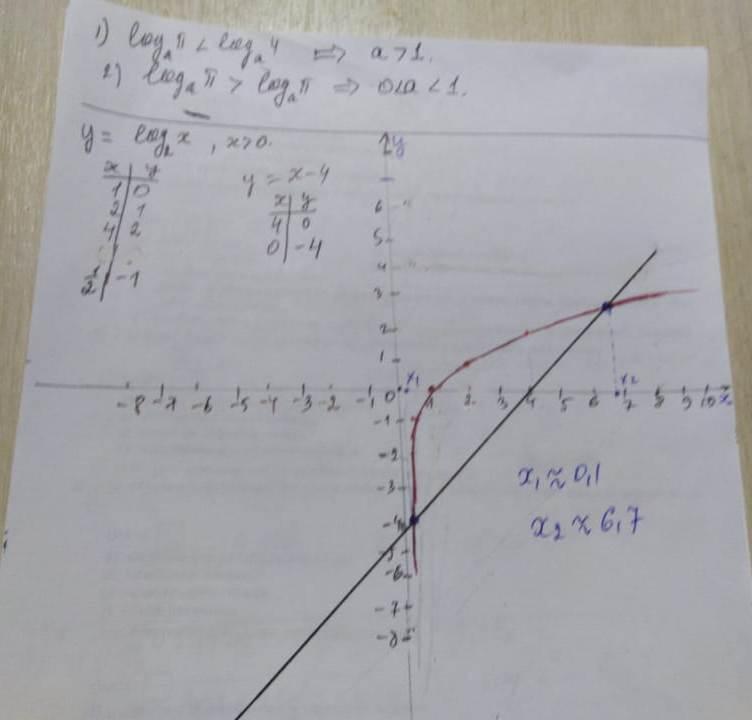 1) logₐπ < logₐ4 ⟹ a > 1.
2) logₐπ > logₐπ ⟹ 0<a<1.
y = log₂x , x>0.
x | y
1 | 0
2 | 1
4 | 2
1/2 | -1
y = x-4
x | y
4 | 0
0 | -4
y
6
5
4
3
2
1
-8 -7 -6 -5 -4 -3 -2 -1 0 x₁ 1 2 3 4 5 6 x₂ 7 8 9 10 x
-1
-2
-3
-4
-5
-6
-7
-8
x₁ ≈ 0,1
x₂ ≈ 6,7